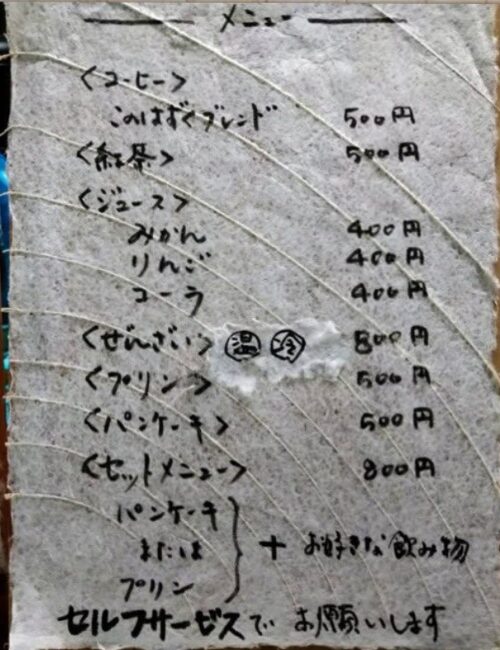 メニュー
<コーヒー>
このはずくブレンド 500円
<紅茶> 500円
<ジュース>
みかん 400円
りんご 400円
コーラ 400円
<ぜんざい> 温 冷 800円
<プリン> 500円
<パンケーキ> 500円
<セットメニュー> 800円
パンケーキ
または + お好きな飲み物
プリン
セルフサービスでお願いします